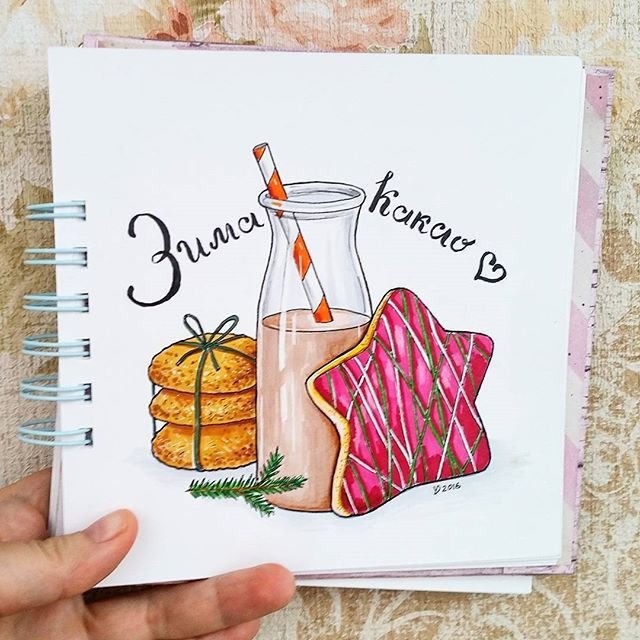 Зима Какао
2016